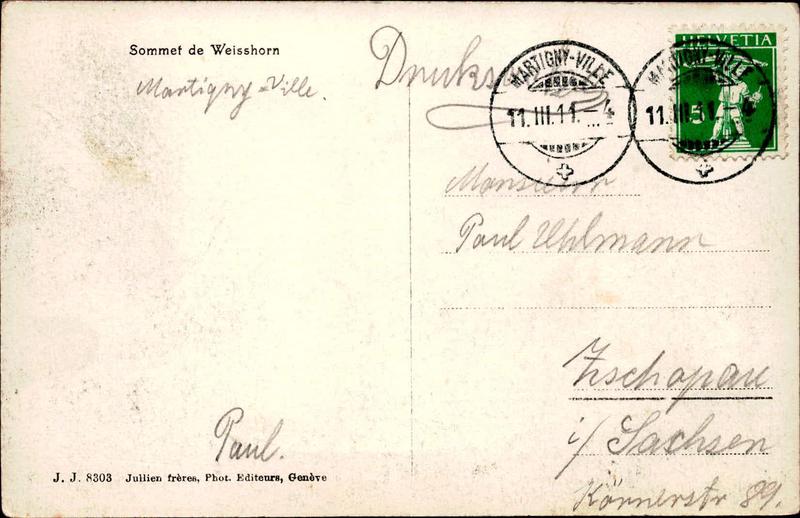 Sommet de Weisshorn
Martigny-Ville.
Drucks
MARTIGNY-VILLE
11.III.11.-4
MARTIGNY-VILLE
11.III.11-4
HELVETIA
5
Monsieur
Paul Uhlmann
Zschopau
i/ Sachsen
Körnerstr 89.
Paul.
J. J. 8303 Jullien frères, Phot. Editeurs, Genève